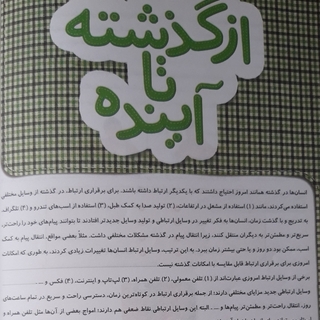 از گذشته
تا
آینده
انسان‌ها در گذشته همانند امروز احتیاج داشتند که با یکدیگر ارتباط داشته باشند. برای برقراری ارتباط، در گذشته از وسایل مختلفی
استفاده می‌کردند. مانند (۱) استفاده از مشعل در ارتفاعات، (۲) تولید صدا به کمک طبل، (۳) استفاده از اسب‌های تندرو و (۴) تلگراف.
به تدریج و با گذشت زمان، انسان‌ها به فکر تغییر در وسایل ارتباطی و تولید وسایل جدیدتر افتادند تا بتوانند پیام‌های خود را راحت‌تر،
سریع‌تر و مطمئن‌تر به دیگران منتقل کنند. زیرا انتقال پیام در گذشته مشکلات مختلفی داشت. مثلاً بعضی مواقع، انتقال پیام به کمک
اسب، ممکن بود دو روز و یا حتی بیشتر زمان ببرد. به این ترتیب، وسایل ارتباط انسان‌ها تغییرات زیادی کردند، به طوری که امکانات
امروزی برای برقراری ارتباط قابل مقایسه با امکانات گذشته نیست.
برخی از وسایل ارتباط امروزی عبارت‌اند از (۱) تلفن معمولی، (۲) تلفن همراه، (۳) لپ‌تاپ و اینترنت، (۴) فکس و ....
وسایل ارتباطی جدید مزایای مختلفی دارند؛ از جمله برقراری ارتباط در کوتاه‌ترین زمان، دسترسی راحت و سریع در تمام ساعت‌های
روز، انتقال راحت‌تر و مطمئن‌تر پیام‌ها و .... البته این وسایل ارتباطی نقاط ضعفی هم دارند؛ امواج بعضی از آن‌ها مثل تلفن همراه